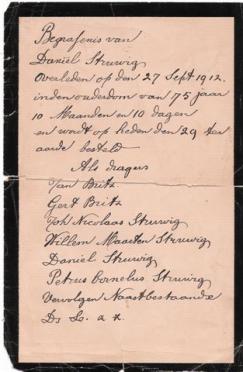 Begrafenis van
Daniel Struwig
Overleden op den 27 Sept 1912.
in den ouderdom van 75 jaar
10 Maanden en 10 dagen
en wordt op heden den 29 ten
aarde besteld
Als dragers
Jan Britz
Gert Britz
Joh Nicolaas Struwig
Willem Maarten Struwig
Daniel Struwig
Petrus Cornelius Struwig
Vervolgen Naastbestaande
Ds L. a x.